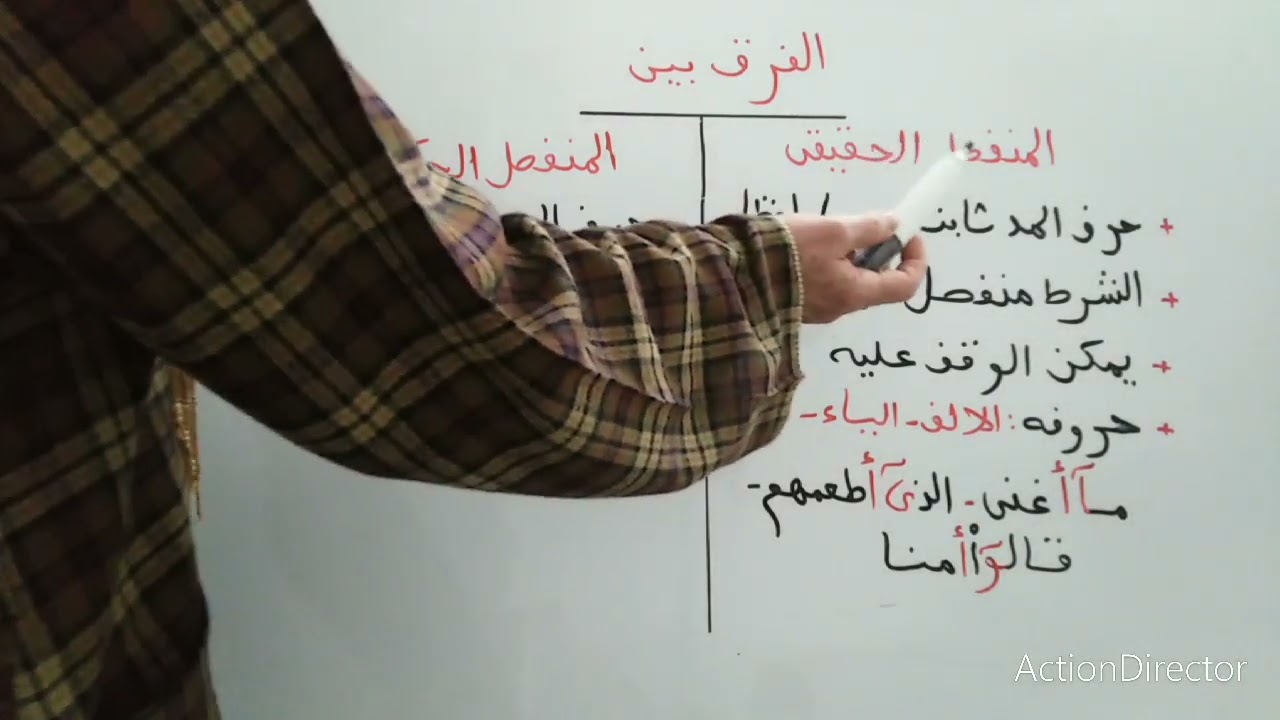 الفرق بين
المنفصل الحقيقي
+ حرف المد ثابت
+ الشرط منفصل
+ يمكن الوقف عليه
+ حروفه: الالف - الياء -
مآ أغنى - الذىٓ أطعمهم -
قالوٓاْ أمنا
المنفصل
ActionDirector